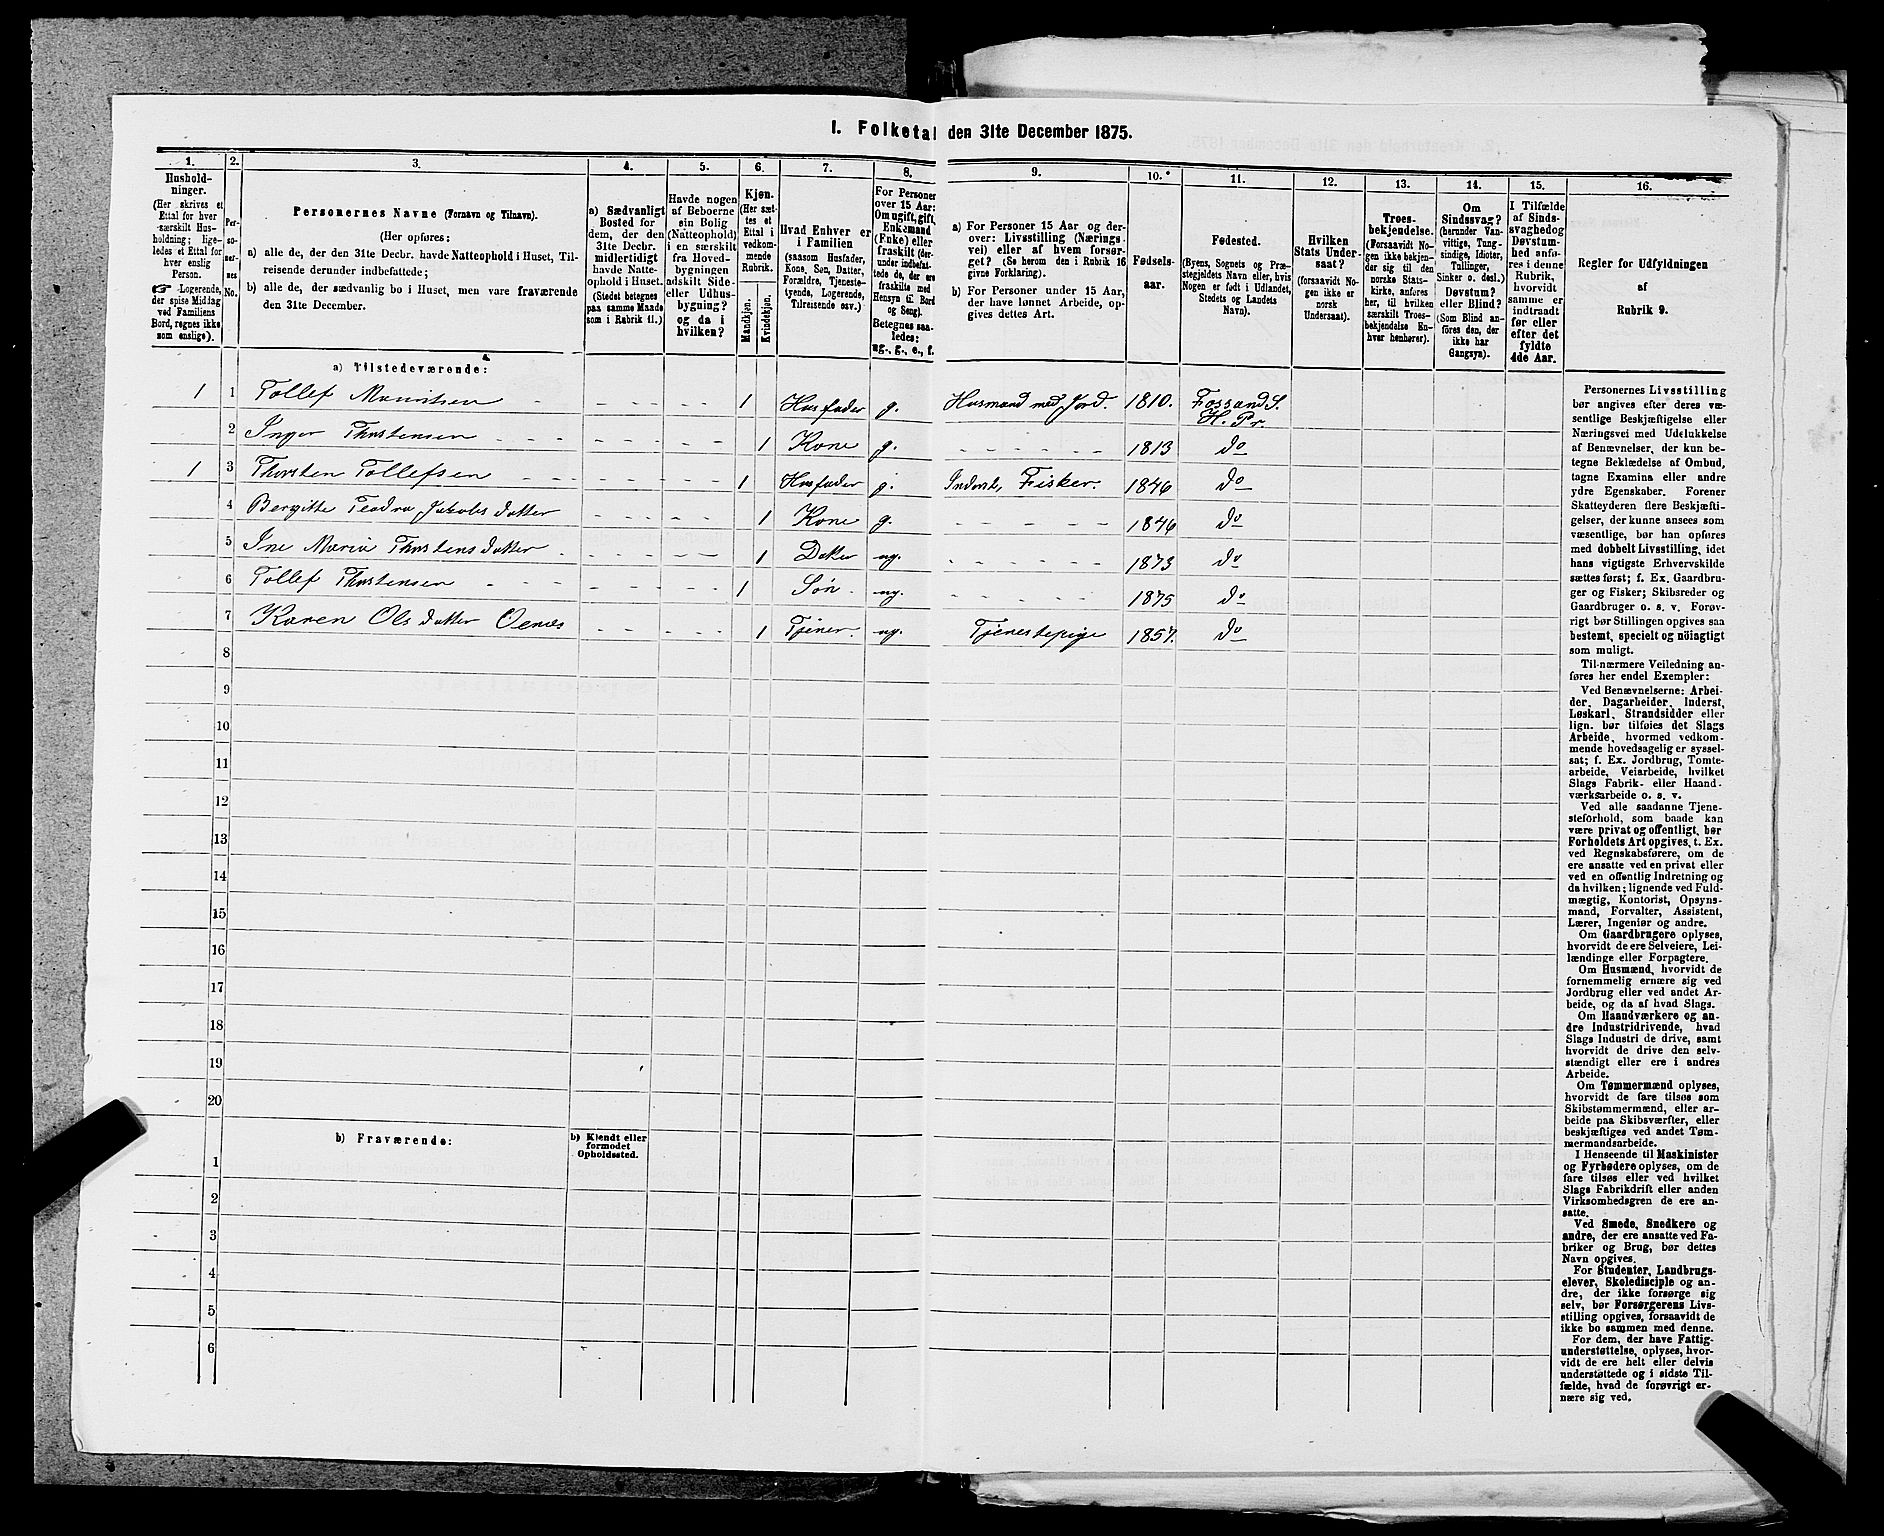 I. Folketal den 31te December 1875.
1.
2.
3.
4.
5.
6.
7.
8.
9.
10.
11.
12.
13.
14.
15.
16.
Hushold-
ninger.
(Her skrives et
Ettal for hver
særskilt Hus-
holdning; lige-
ledes et Ettal for
hver enslig
Person.
☞ Logerende,
der spise Middag
ved Familiens
Bord, regnes ikke
som enslige).
Per-
so-
ner-
nes
No.
Personernes Navne (Fornavn og Tilnavn).
(Her opføres:
a) alle de, der den 31te Decbr. havde Natteophold i Huset, Til-
reisende derunder indbefattede;
b) alle de, der sædvanlig bo i Huset, men vare fraværende
den 31te December.
a) Sædvanligt
Bosted for
dem, der den
31te Decbr.
midlertidigt
havde Natte-
ophold i Huset.
(Stedet betegnes
paa samme Maade
som i Rubrik 11.)
Havde nogen
af Beboerne
sin Bolig
(Natteophold)
i en særskilt
fra Hoved-
bygningen
adskilt Side-
eller Udhus-
bygning?
og da i
hvilken?
Kjøn.
(Her sæt-
tes et
Ettal i
vedkom-
mende
Rubrik.
Mandkjøn.
Kvindekjøn.
Hvad Enhver er
i Familien
(saasom Husfader,
Kone, Søn, Datter,
Forældre, Tjeneste-
tyende, Logerende,
Tilreisende osv.)
For Personer
over 15 Aar:
Om ugift, gift,
Enkemand
(Enke) eller
fraskilt (der-
under indbefat-
tede de, der ere
fraskilte med
Hensyn til Bord
og Seng).
Betegnes saa-
ledes:
ug., g., e., f.
a) For Personer 15 Aar og der-
over: Livsstilling (Nærings-
vei) eller af hvem forsør-
get? (Se herom den i Rubrik 16
givne Forklaring).
b) For Personer under 15 Aar,
der have lønnet Arbeide, op-
gives dettes Art.
Fødsels-
aar.
Fødested.
(Byens, Sognets og Præ-
stegjeldets Navn eller, hvis
Nogen er født i Udlandet,
Stedets og Landets
Navn).
Hvilken
Stats Under-
saat?
(forsaavidt No-
gen ikke er
norsk
Undersaat).
Troes-
bekjendelse.
(Forsaavidt No-
gen ikke bekjen-
der sig til den
norske Stats-
kirke, anføres
her, til hvilken
særskilt Troes-
bekjendelse En-
hver henhører).
Om
Sindssvag?
(herunder Van-
vittige, Tung-
sindige, Idioter,
Tullinger,
Sinker o. desl.)
Døvstum?
eller Blind?
(Som Blind an-
føres den, der
ikke har
Gangsyn).
I Tilfælde
af Sinds-
svaghed og
Døvstum-
hed anfø-
res i denne
Rubrik,
hvorvidt
samme er
indtraadt
før eller
efter det
fyldte
4de Aar.
Regler for Udfyldningen
af
Rubrik 9.
a) Tilstedeværende:
1 1 Tollef Mauritsen 1 Husfader g. Husmand med Jord. 1810. Fossand S.
H. Pr.
2 Inger Thorstensen 1 Kone g. 1813 do
1 3 Thorsten Tollefsen 1 Husfader g. Inderst, Fisker. 1846 do
4 Bergitte Teodra Jakobs datter 1 Kone g. 1846 do
5 Ine Maria Thorstens datter 1 Datter ug. 1873 do
6 Tollef Thorstensen 1 Søn ug. 1875 do
7 Karen Ols datter Oenæs 1 Tjener. ug. Tjenestepige 1857. do
8
9
10
11
12
13
14
15
16
17
18
19
20
b) Fraværende:
b) Kjendt eller
formodet
Opholdssted.
1
2
3
4
5
6
Personernes Livsstilling
bør angives efter deres væ-
sentlige Beskjæftigelse eller
Næringsvei med Udelukkelse
af Benævnelser, der kun be-
tegne Beklædelse af Ombud,
tagne Examina eller andre
ydre Egenskaber. Forener
Skatteyderen flere Beskjæfti-
gelser, der kunne ansees som
væsentlige, bør han opføres
med dobbelt Livsstilling, idet
hans vigtigste Erhvervskilde
sættes først; f. Ex. Gaardbru-
ger og Fisker; Skibsreder og
Gaardbruger o. s. v. Forøv-
rigt bør Stillingen opgives saa
bestemt, specielt og nöiagtigt
som muligt.
Til nærmere Veiledning an-
føres her endel Exempler:
Ved Benævnelserne: Arbei-
der, Dagarbeider, Inderst,
Løskarl, Strandsidder eller
lign. bør tilføies det Slags
Arbeide, hvormed vedkom-
mende hovedsagelig er syssel-
sat; f. Ex. Jordbrug, Tomte-
arbeide, Veiarbeide, hvilket
Slags Fabrik- eller Haand-
værksarbeide o. s. v.
Ved alle saadanne Tjene-
steforhold, som baade kan
være privat og offentligt, bør
Forholdets Art opgives, t. Ex.
ved Regnskabsførere, om de
ere ansatte ved en privat eller
ved en offentlig Indretning og
da hvilken; lignende ved Fuld-
mægtig, Kontorist, Opsyns-
mand, Forvalter, Assistent,
Lærer, Ingeniør og andre.
Om Gaardbrugere oplyses,
hvorvidt de ere Selveiere, Lei-
lændinge eller Forpagtere.
Om Husmænd, hvorvidt de
fornemmelig ernære sig ved
Jordbrug eller ved andet Ar-
beide, og da af hvad Slags.
Om Haandværkere og an-
dre Industridrivende, hvad
Slags Industri de drive, samt
hvorvidt de drive den selv-
stændigt eller ere i andres
Arbeide.
Om Tømmermænd oplyses,
hvorvidt de fare tilsøs som
Skibstømmermænd, eller ar-
beide paa Skibsværfter, eller
beskjæftiges ved andet Tøm-
mermandsarbeide.
I Henseende til Maskinister
og Fyrbødere oplyses, om de
fare tilsøs eller ved hvilket
Slags Fabrikdrift eller anden
Virksomhedsgren de ere an-
satte.
Ved Smede, Snedkere og
andre, der ere ansatte ved Fa-
briker og Brug, bør dettes
Navn opgives.
For Studenter, Landbrugs-
elever, Skoledisciple og an-
dre, der ikke forsørge sig
selv, bør Forsørgerens Livs-
stilling opgives, forsaavidt de
ikke bo sammen med denne.
For dem, der have Fattig-
understøttelse, oplyses, hvor-
vidt de ere helt eller delvis
understøttede og i sidste Til-
fælde, hvad de forøvrigt er-
nære sig ved.